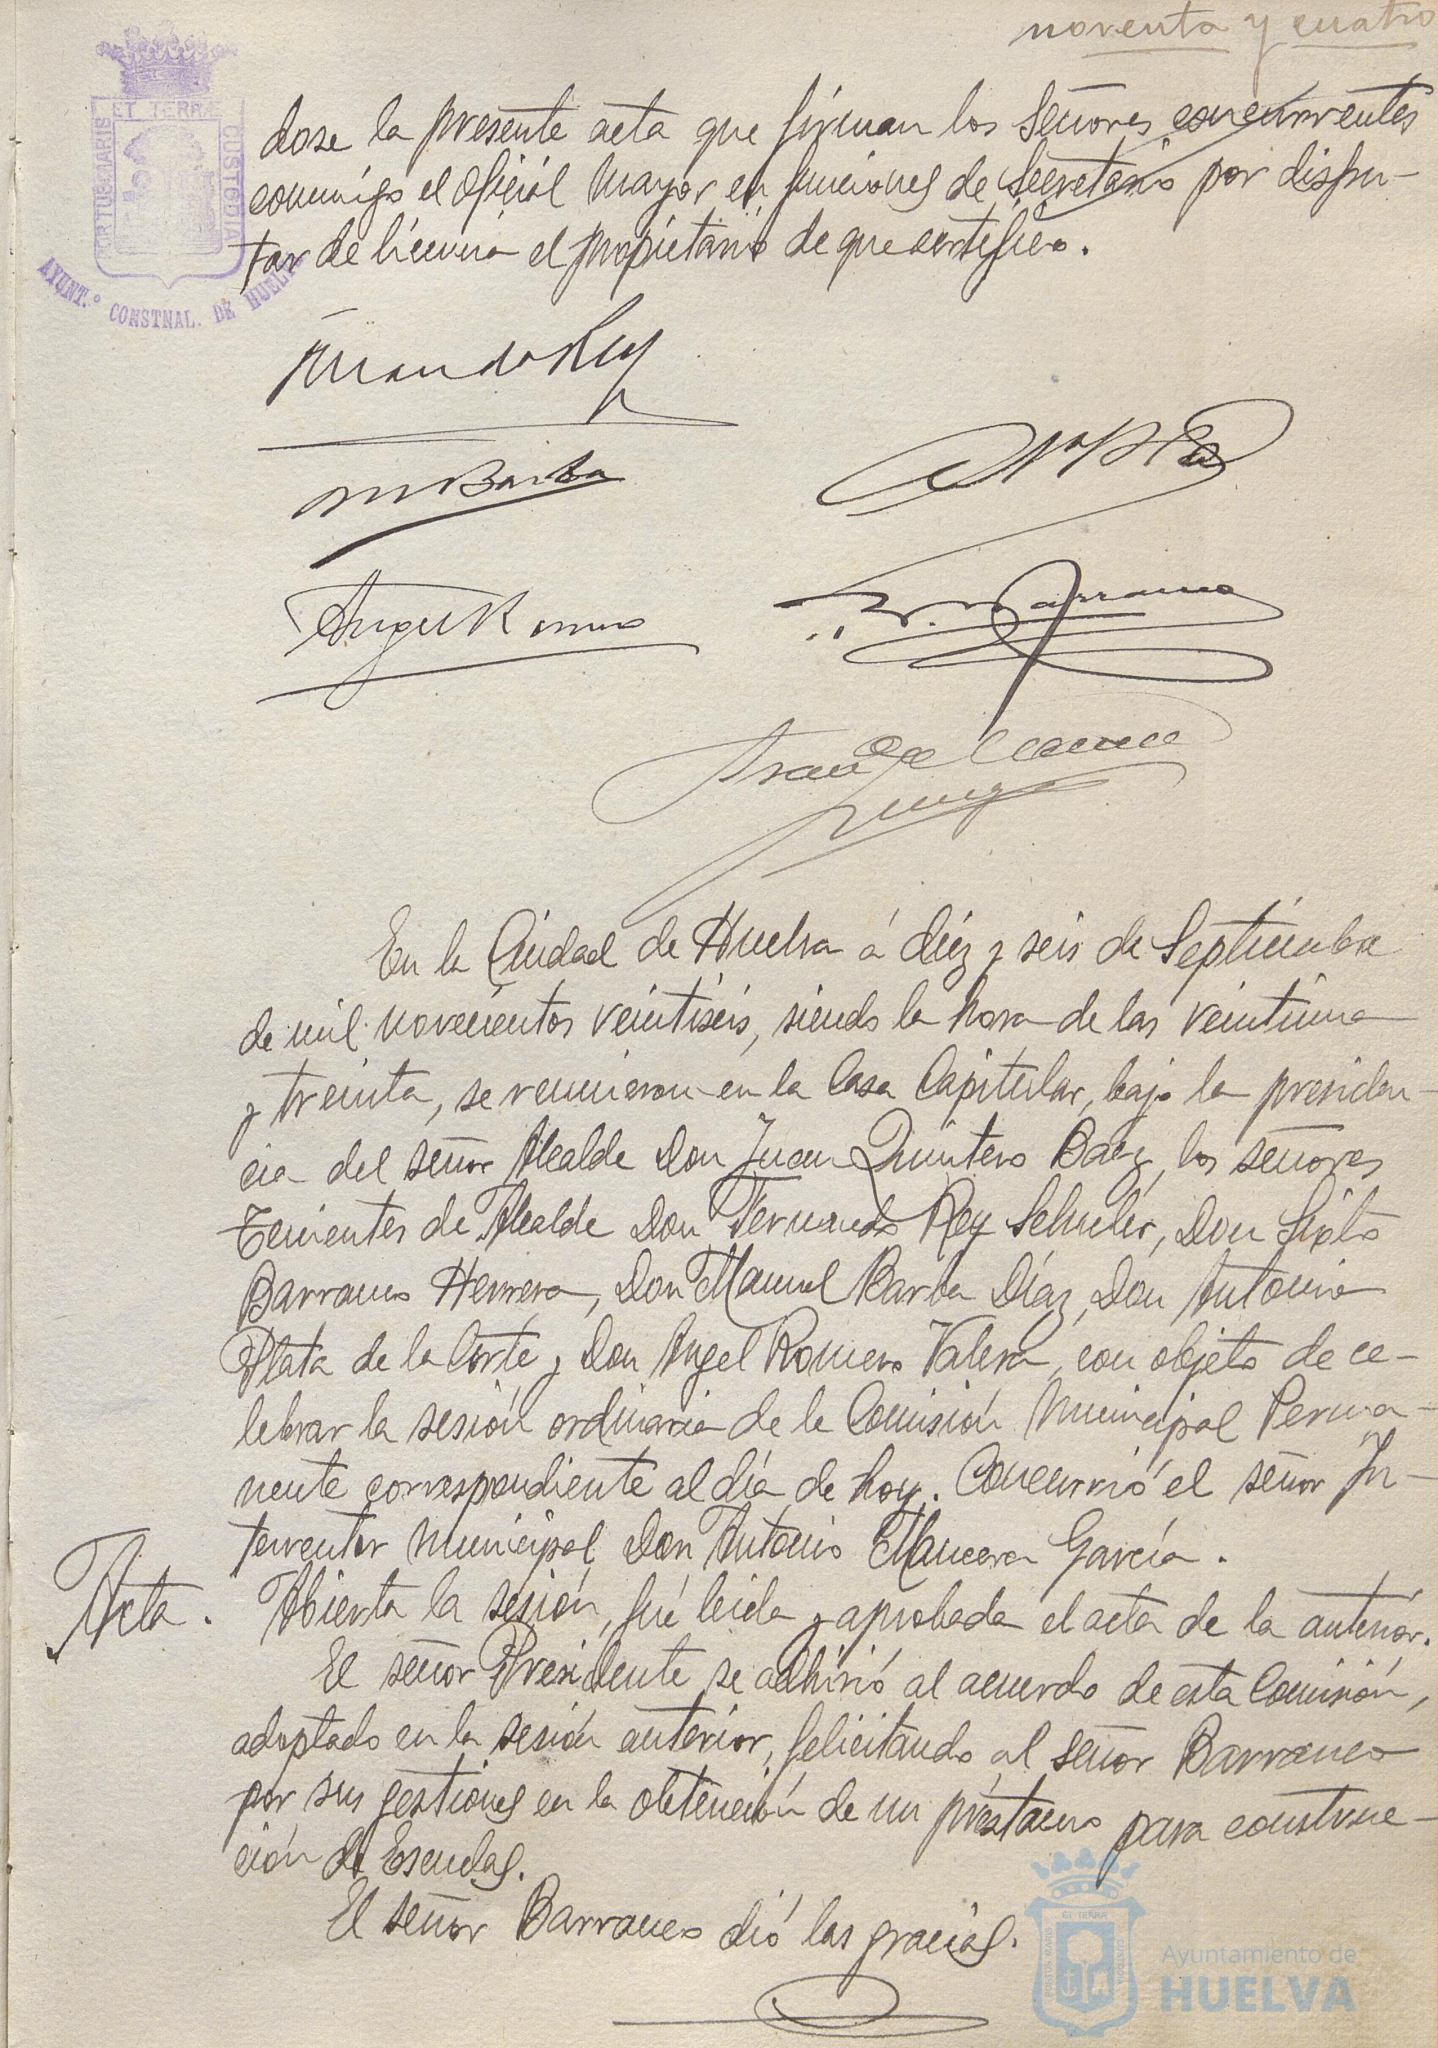 noventa y cuatro
PORTUS MARIS
ET TERRÆ
CUSTODIA
AYUNT.º CONSTNAL. DE HUELVA
dose la presente acta que firman los Señores concurrentes
conmigo el Oficial Mayor en funciones de Secretario por disfru-
tar de licencia el propietario de que certifico.
Fernando Rey
M Barba
Angel Romero
S. Barranco
En la Ciudad de Huelva á diez y seis de Septiembre
de mil novecientos veintiseis, siendo la hora de las veintiuna
y treinta, se reunieron en la Casa Capitular, bajo la presiden-
cia del señor Alcalde Don Juan Quintero Baez, los señores
Tenientes de Alcalde Don Fernando Rey Schuler, Don Sixto
Barranco Herrera, Don Manuel Barba Díaz, Don Antonio
Plata de la Corte y Don Angel Romero Valera, con objeto de ce-
lebrar la sesión ordinaria de la Comisión Municipal Perma-
nente correspondiente al día de hoy. Concurrió el señor In-
terventor Municipal, Don Antonio Mancera García.
Acta. Abierta la sesión, fué leida y aprobada el acta de la anterior.
El señor Presidente se adhirió al acuerdo de esta Comisión,
adoptado en la sesión anterior, felicitando al señor Barranco
por sus gestiones en la obtención de un préstamo para construc-
ción de Escuelas.
El señor Barranco dió las gracias.
Ayuntamiento de
HUELVA